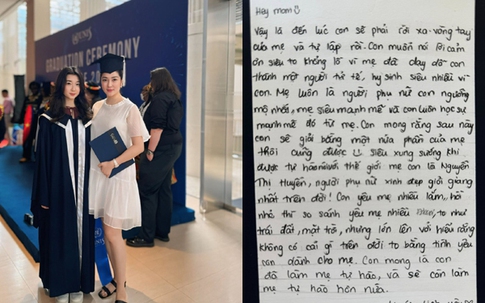 GRADUATION CEREMONY
Hey mom
Vậy là đến lúc con sẽ phải rời xa vòng tay
của mẹ và tự lập rồi. Con muốn nói lời cảm
ơn siêu to khổng lồ vì mẹ đã dạy dỗ con
thành một người tử tế, hy sinh siêu nhiều vì
con. Mẹ luôn là người phụ nữ con ngưỡng
mộ nhất, mẹ siêu mạnh mẽ và con luôn học sự
mạnh mẽ đó từ mẹ. Con mong rằng sau này
con sẽ giỏi bằng một nửa phần của mẹ
thôi cũng được siêu sung sướng khi
được tự hào với thế giới mẹ con là Nguyễn
Thị Thuyên, người phụ nữ xinh đẹp giỏi giang
nhất trên đời! Con yêu mẹ nhiều lắm, hồi
nhỏ thì so sánh yêu mẹ nhiều to như
trái đất, mặt trời, nhưng lớn lên với hiểu rằng
không có cái gì trên đời to bằng tình yêu
con dành cho mẹ. Con mong là con
đã làm mẹ tự hào, và sẽ còn làm
mẹ tự hào hơn nữa.